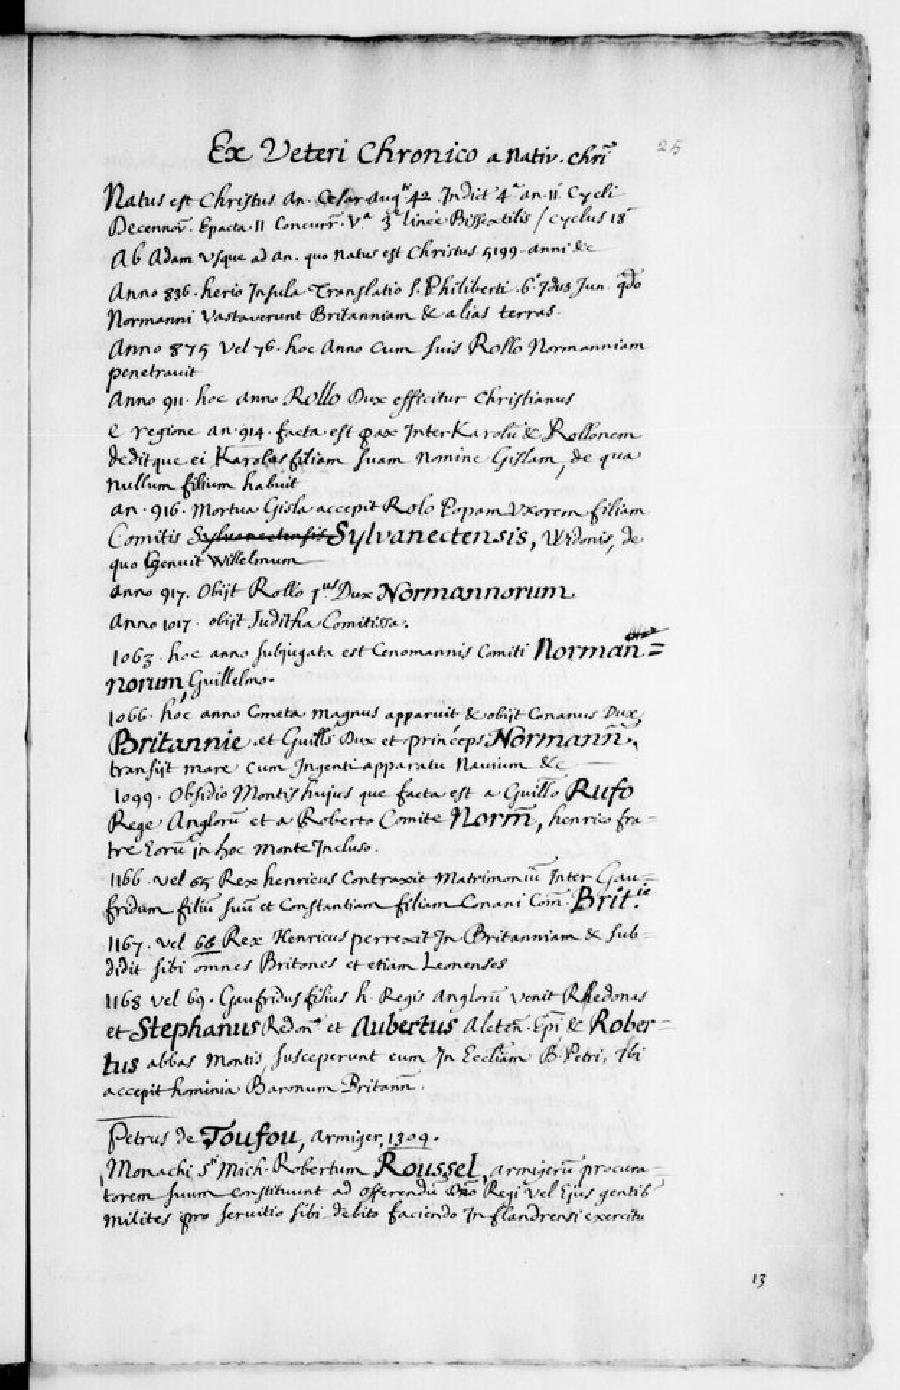 Ex Veteri Chronico a nativ. chrī
25
Natus est Christus an. Cesar Aug 42 Indict 4ᵃ an. 11 Cycli
Decennov. Epacta. 11 Concurr̄. Vᵃ 3ᵃ lineē Bissextilis / cyclus 18
Ab Adam Vsque ad an. quo natus est Christus 5199. anni &c
Anno 836. herio Insula Translatio S. Philiberti. 6° Idus Jun. qd̄o
Normanni Vastaverunt Britanniam & alias terras.
Anno 875 Vel 76. hoc Anno Cum suis Rollo Normanniam
penetravit
Anno 911. hoc anno Rollo Dux efficitur Christianus
e regione an. 914. facta est pax Inter Karolū & Rollonem
deditque ei Karolus filiam suam nomine Gislam, de qua
nullum filium habuit
an. 916. Mortua Gisla accepit Rolo Popam Vxorem filiam
Comitis Sylvanectensis Sylvanectensis, Widonis, de
quo Genuit Willelmum
anno 917. Obijt Rollo 1ᵘˢ Dux Normannorum
Anno 1017. obijt Juditha Comitissa.
1063. hoc anno subjugata est Cenomannis Comiti Norman̄=
norum, Guillelmo.
1066. hoc anno Cometa magnus apparuit & obijt Conanus Dux
Britannie et Guills̄ Dux et princeps Normann̄.
transijt mare cum Ingenti apparatu Navium &c
1099. Obsidio Montis hujus que facta est a Guill̄o Rufo
Rege Anglorū et a Roberto Comite Norm̄, henrico fra=
tre Eorū in hoc monte Incluso.
1166. vel 65 Rex henricus Contraxit Matrimoniū Inter Gau=
fridum filiū suū et Constantiam filiam Conani Com̄. Brit.ⁱᵉ
1167. vel 66 Rex Henricus perrexit In Britanniam & sub=
didit sibi om̄nes Britones et etiam Leonenses
1168 vel 69. Gaufridus filius h. Regis Anglorū venit Redonas
et Stephanus Redon̄ et Aubertus Aleten̄. Ep̄i & Rober=
tus abbas Montis, susceperunt eum In Eccl̄iam B. Petri, Ibi
accepit hominia Baronum Britann̄.
Petrus de Toufou, armiger, 1309.
Monachi Sᵗⁱ Mich. Robertum Roussel, armigerū procura=
torem suum constituunt ad offerendū Dn̄o Regi vel Ejus gentib
milites pro servitio sibi debito faciendo In flandrensi exercitu
13